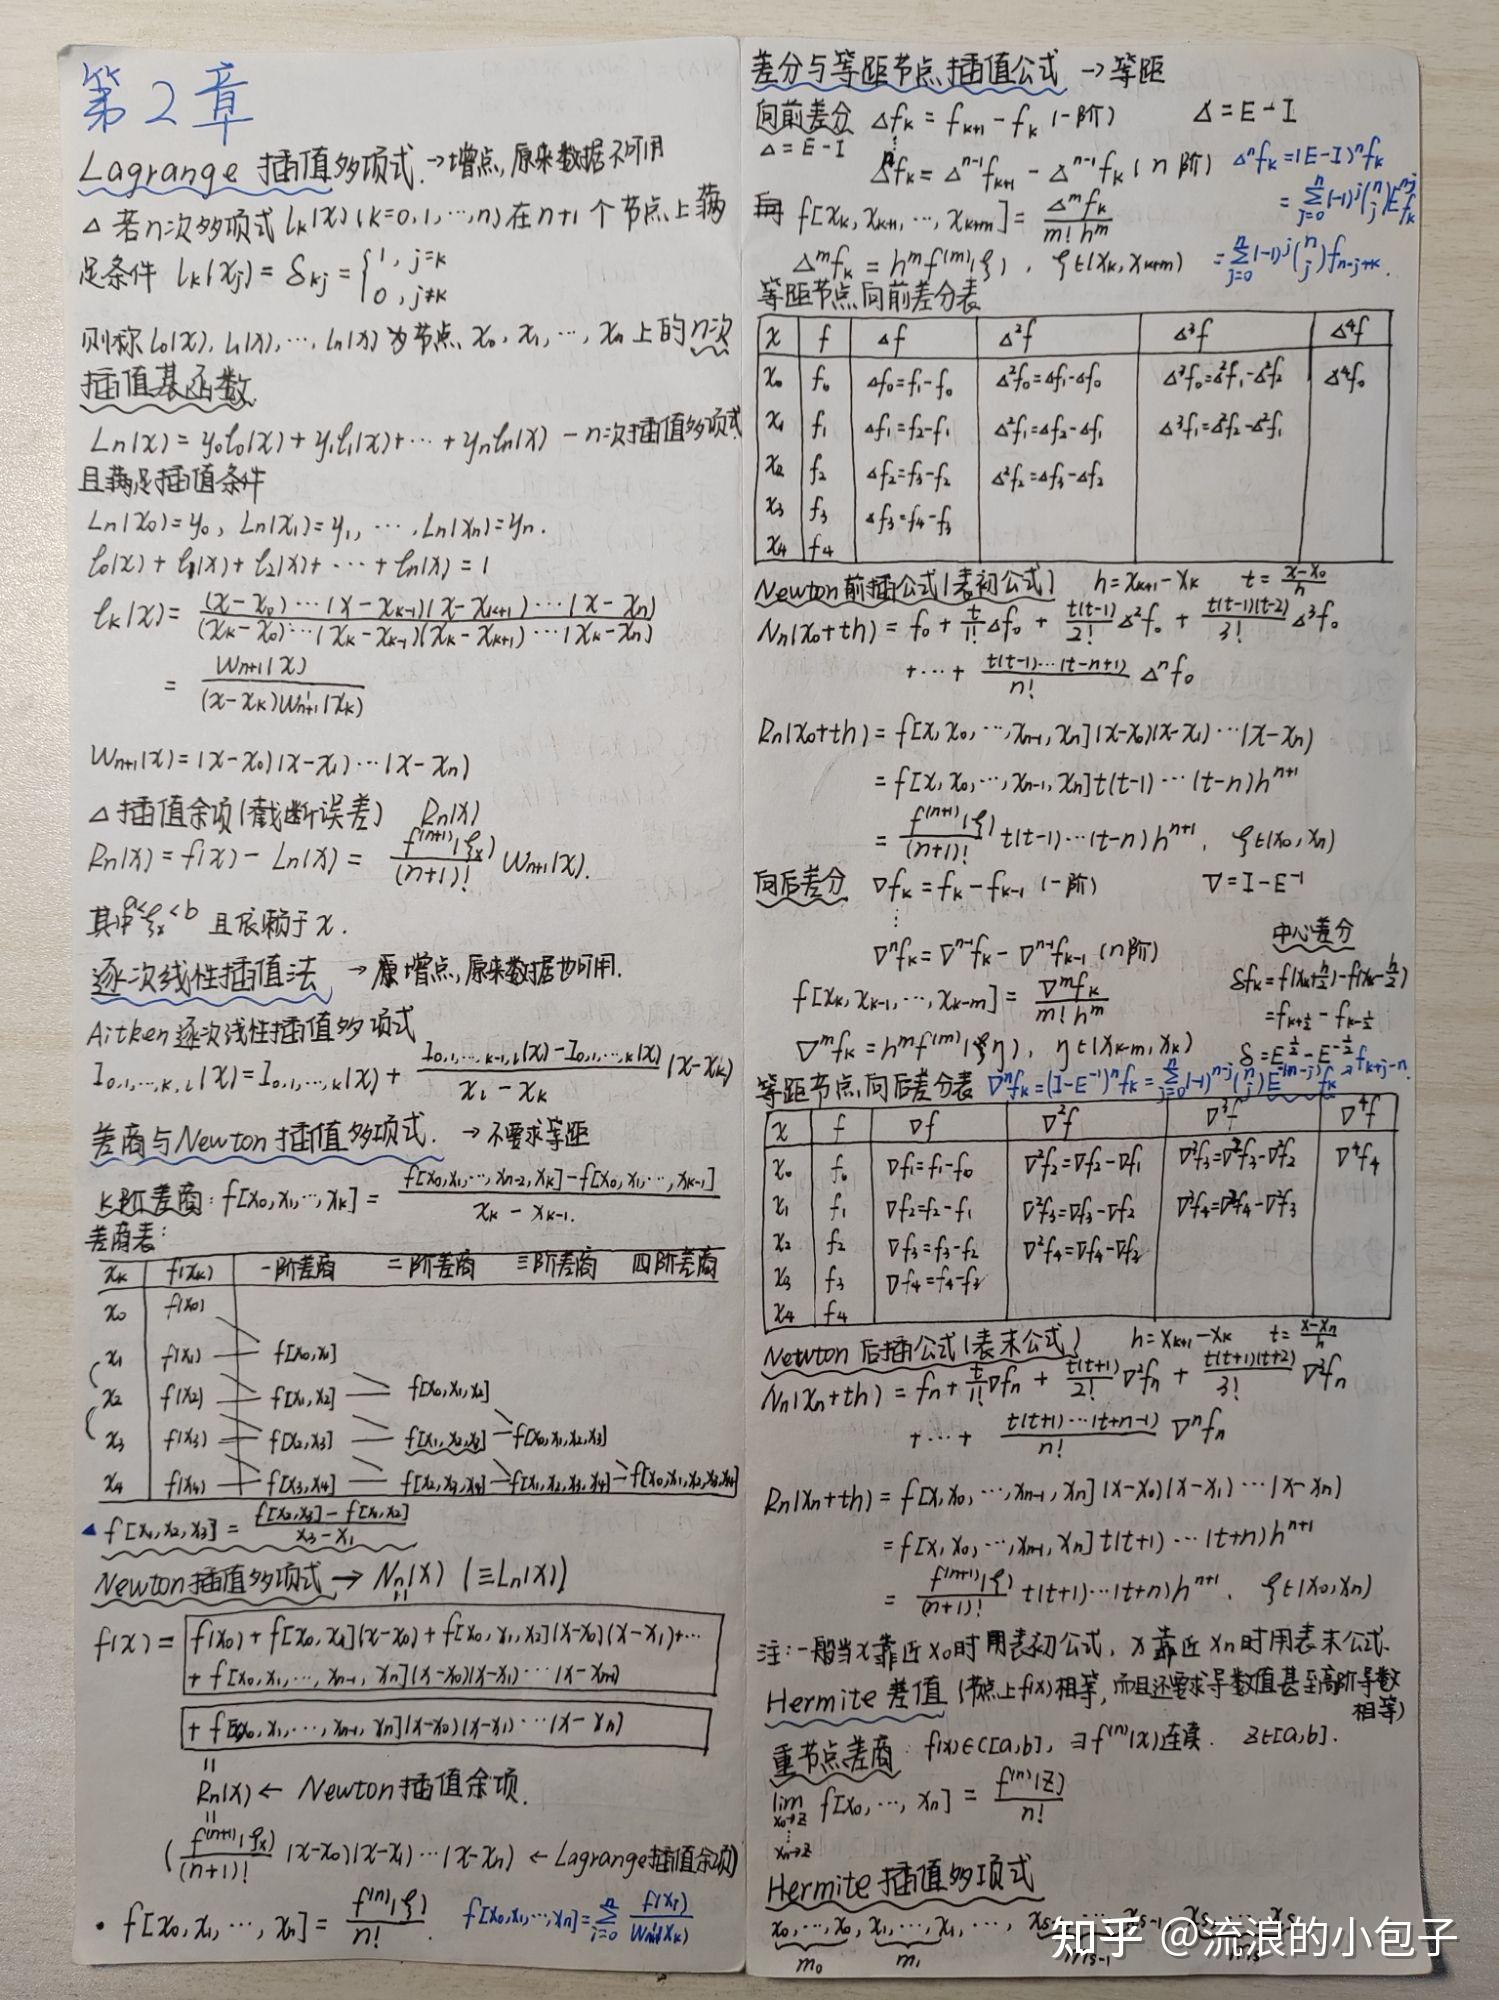 第2章
Lagrange 插值多项式 →增点,原来数据不可用
△ 若n次多项式 lk(x)(k=0,1,…,n)在n+1个节点上满
足条件 lk(xj)=δkj={1, j=k
0, j≠k
则称l0(x), l1(x),…, ln(x)为节点x0, x1,…, xn上的n次
插值基函数
Ln(x)=y0l0(x)+y1l1(x)+…+ynln(x) -n次插值多项式
且满足插值条件
Ln(x0)=y0, Ln(x1)=y1, …, Ln(xn)=yn.
l0(x)+l1(x)+l2(x)+…+ln(x)=1
lk(x)= (x-x0)…(x-xk-1)(x-xk+1)…(x-xn) / (xk-x0)…(xk-xk-1)(xk-xk+1)…(xk-xn)
= Wn+1(x) / (x-xk)W'n+1(xk)
Wn+1(x)=(x-x0)(x-x1)…(x-xn)
△插值余项(截断误差) Rn(x)
Rn(x)=f(x)-Ln(x)= f⁽ⁿ⁺¹⁾(ξx)/(n+1)! Wn+1(x).
其中a<ξx<b 且依赖于x.
逐次线性插值法 →增点,原来数据也可用.
Aitken逐次线性插值多项式
I0,1,…,k,l(x)=I0,1,…,k(x)+ I0,1,…,k-1,l(x)-I0,1,…,k(x) / xl-xk (x-xk)
差商与Newton插值多项式. →不要求等距
k阶差商: f[x0,x1,…,xk]= f[x0,x1,…,xn-2,xk]-f[x0,x1,…,xk-1] / xk-xk-1.
差商表:
xk f(xk) 一阶差商 二阶差商 三阶差商 四阶差商
x0 f(x0)
x1 f(x1) f[x0,x1]
x2 f(x2) f[x1,x2] f[x0,x1,x2]
x3 f(x3) f[x2,x3] f[x1,x2,x3] f[x0,x1,x2,x3]
x4 f(x4) f[x3,x4] f[x2,x3,x4] f[x1,x2,x3,x4] f[x0,x1,x2,x3,x4]
▲ f[x1,x2,x3]= f[x2,x3]-f[x1,x2] / x3-x1
Newton插值多项式→Nn(x) (≡Ln(x))
f(x)= f(x0)+f[x0,x1](x-x0)+f[x0,x1,x2](x-x0)(x-x1)+…
+f[x0,x1,…,xn-1,xn](x-x0)(x-x1)…(x-xn-1)
+f[x0,x1,…,xn-1,xn](x-x0)(x-x1)…(x-xn)
=
Rn(x)← Newton插值余项.
=
(f⁽ⁿ⁺¹⁾(ξx)/(n+1)! (x-x0)(x-x1)…(x-xn) ←Lagrange插值余项)
• f[x0,x1,…,xn]= f⁽ⁿ⁾(ξ)/n! . f[x0,x1,…,xn]=Σⁿi=0 f(xi)/W'n+1(xk)
差分与等距节点插值公式 →等距
向前差分 Δfk=fk+1-fk (一阶) Δ=E-I
Δ=E-I ⋮
Δⁿfk=Δⁿ⁻¹fk+1-Δⁿ⁻¹fk (n阶) Δⁿfk=(E-I)ⁿfk
=Σⁿj=0(-1)ʲ(n j)Eⁿ⁻ʲfk
f[xk,xk+1,…,xk+m]= Δᵐfk / m!hᵐ
Δᵐfk=hᵐf⁽ᵐ⁾(ξ), ξ∈(xk,xk+m) =Σⁿj=0(-1)ʲ(n j)fn-j+k.
等距节点向前差分表
x f Δf Δ²f Δ³f Δ⁴f
x0 f0 Δf0=f1-f0 Δ²f0=Δf1-Δf0 Δ³f0=Δ²f1-Δ²f2 Δ⁴f0
x1 f1 Δf1=f2-f1 Δ²f1=Δf2-Δf1 Δ³f1=Δ²f2-Δ²f1
x2 f2 Δf2=f3-f2 Δ²f2=Δf3-Δf2
x3 f3 Δf3=f4-f3
x4 f4
Newton前插公式(表初公式) h=xk+1-xk t= x-x0 / h
Nn(x0+th)=f0+ t/1! Δf0+ t(t-1)/2! Δ²f0+ t(t-1)(t-2)/3! Δ³f0
+…+ t(t-1)…(t-n+1)/n! Δⁿf0
Rn(x0+th)=f[x,x0,…,xn-1,xn](x-x0)(x-x1)…(x-xn)
=f[x,x0,…,xn-1,xn]t(t-1)…(t-n)hⁿ⁺¹
= f⁽ⁿ⁺¹⁾(ξ)/(n+1)! t(t-1)…(t-n)hⁿ⁺¹, ξ∈(x0,xn)
向后差分 ∇fk=fk-fk-1 (一阶) ∇=I-E⁻¹
⋮
∇ⁿfk=∇ⁿ⁻¹fk-∇ⁿ⁻¹fk-1 (n阶) 中心差分
f[xk,xk-1,…,xk-m]= ∇ᵐfk / m!hᵐ δfk=f(xk+h/2)-f(xk-h/2)
=fk+½-fk-½
∇ᵐfk=hᵐf⁽ᵐ⁾(η), η∈(xk-m,xk) δ=E^½-E^-½
等距节点向后差分表 ∇ⁿfk=(I-E⁻¹)ⁿfk=Σⁿj=0(-1)ⁿ⁻ʲ(n j)E⁻⁽ⁿ⁻ʲ⁾fk →fk+j-n.
x f ∇f ∇²f ∇³f ∇⁴f
x0 f0 ∇f1=f1-f0 ∇²f2=∇f2-∇f1 ∇³f3=∇²f3-∇²f2 ∇⁴f4
x1 f1 ∇f2=f2-f1 ∇²f3=∇f3-∇f2 ∇³f4=∇²f4-∇²f3
x2 f2 ∇f3=f3-f2 ∇²f4=∇f4-∇f3
x3 f3 ∇f4=f4-f3
x4 f4
Newton后插公式(表末公式) h=xk+1-xk t= x-xn / h
Nn(xn+th)=fn+ t/1! ∇fn+ t(t+1)/2! ∇²fn+ t(t+1)(t+2)/3! ∇³fn
+…+ t(t+1)…(t+n-1)/n! ∇ⁿfn
Rn(xn+th)=f[x,x0,…,xn-1,xn](x-x0)(x-x1)…(x-xn)
=f[x,x0,…,xn-1,xn]t(t+1)…(t+n)hⁿ⁺¹
= f⁽ⁿ⁺¹⁾(ξ)/(n+1)! t(t+1)…(t+n)hⁿ⁺¹, ξ∈(x0,xn)
注:一般当x靠近x0时用表初公式, x靠近xn时用表末公式.
Hermite差值 (节点上f(x)相等,而且还要求导数值甚至高阶导数
相等)
重节点差商: f(x)∈C[a,b], ∃f⁽ⁿ⁾(x)连续. z∈[a,b].
lim f[x0,…,xn]= f⁽ⁿ⁾(z)/n!
x0→z
⋮
xn→z
Hermite插值多项式
x0,…,x0, x1,…,x1, …, xs-1,…,xs-1, xs,…,xs
m0 m1 ms-1
知乎 @流浪的小包子